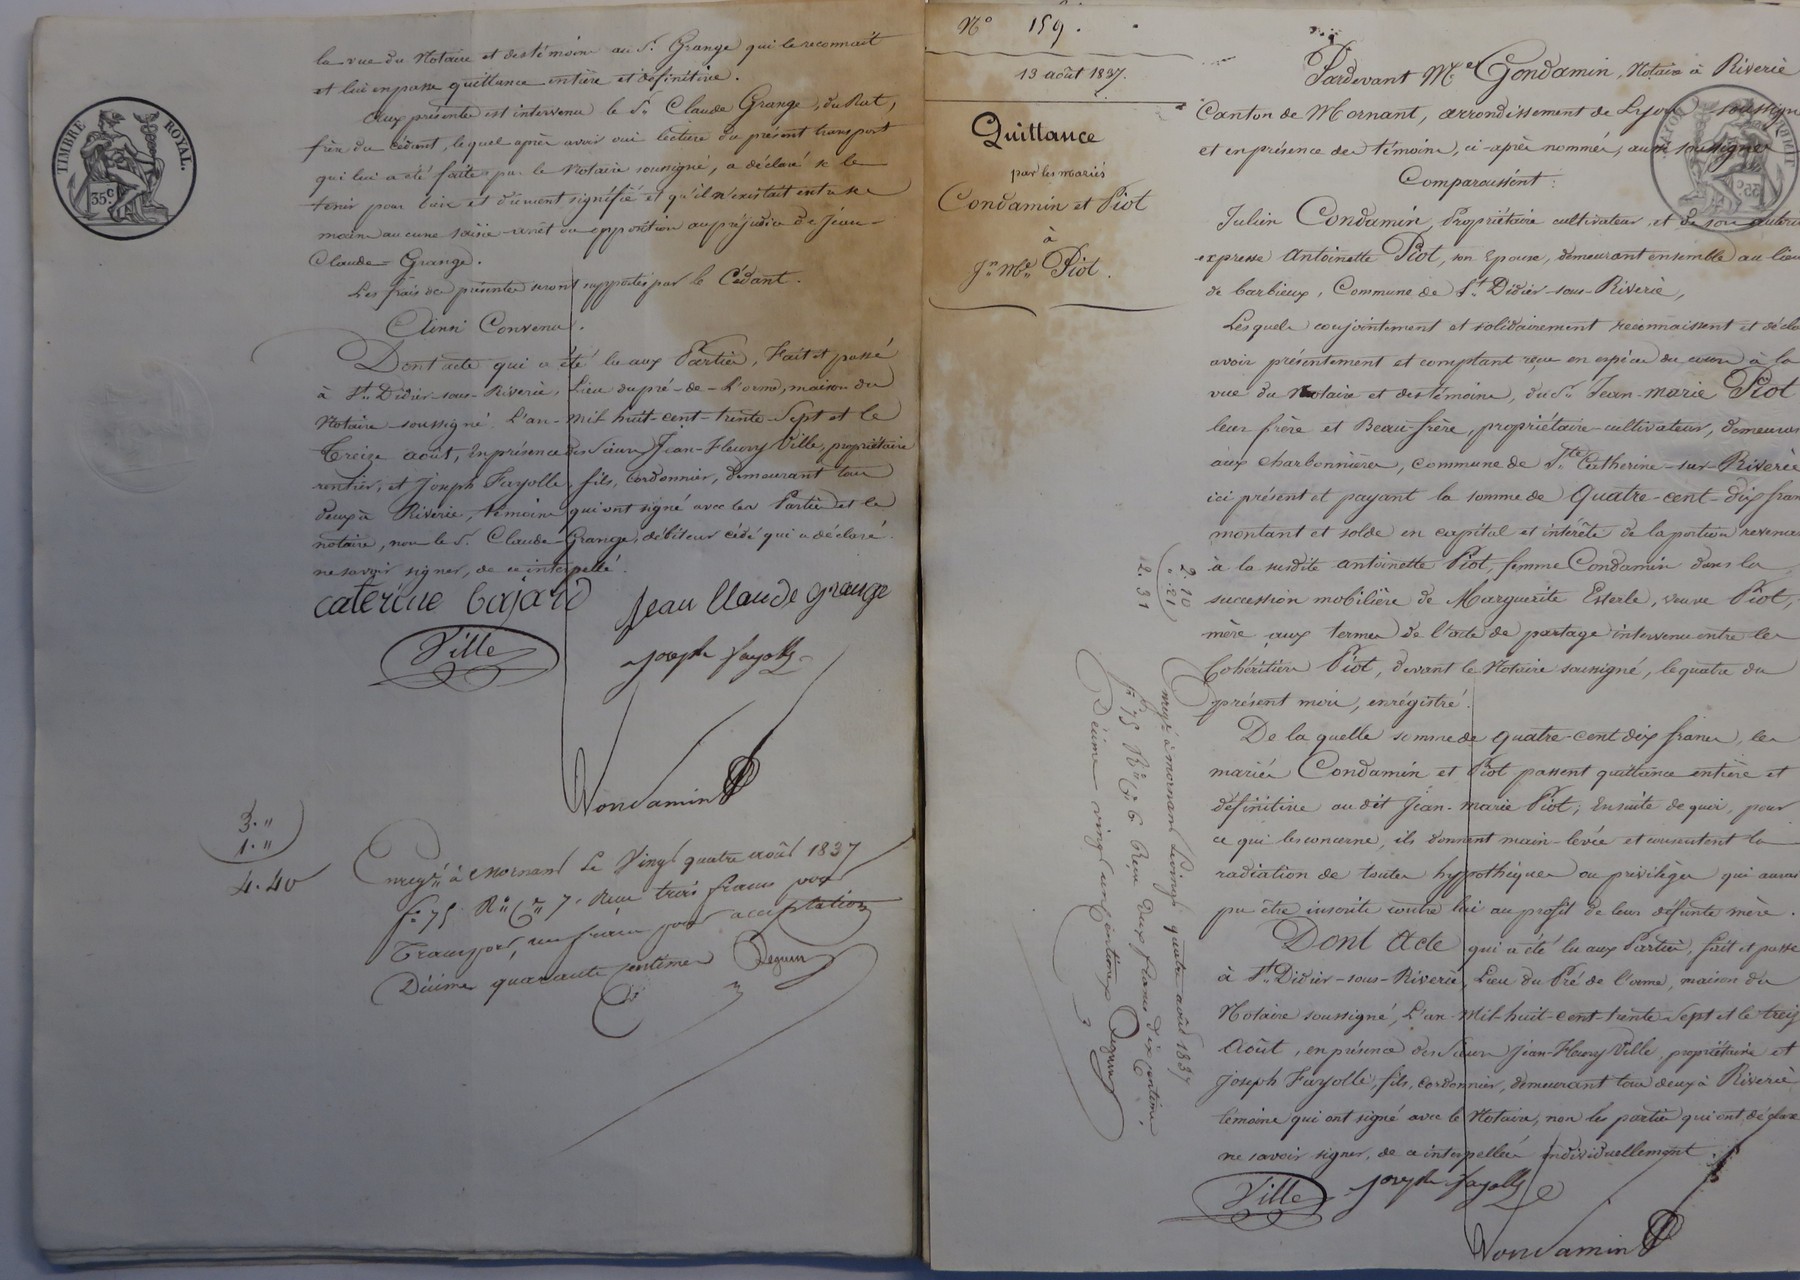 la vue du Notaire et des témoins au Sr. Grange qui le reconnait
et lui en passe quittance entière et définitive.
Aux présentes est intervenu le Sr. Claude Grange, du Rat,
frère du Cédant, lequel après avoir oui lecture du présent transport
qui lui a été faite par le Notaire soussigné, a déclaré se le
tenir pour bien et dûment signifié et qu'il n'existait entre ses
mains aucune saisie-arrêt ou opposition au préjudice de Jean-
Claude Grange.
Les frais des présentes seront supportés par le Cédant.
Ainsi Convenu.
Dont acte qui a été lu aux Parties, Fait et passé
à St. Didier-sous-Riverie, Lieu du pré-de-l'orme, maison du
Notaire soussigné, L'an-Mil-huit-cent-trente-Sept et le
Treize août, En présence des Sieurs Jean-Fleury Ville, propriétaire
rentier, et Joseph Fayolle, fils, Cordonnier, demeurant tous
deux à Riverie, témoins qui ont signé avec les Parties et le
notaire, non le Sr. Claude Grange, débiteur cédé qui a déclaré
ne savoir signer, de ce interpellé.
TIMBRE ROYAL.
35c
caterine Bajard Jean Claude Grange
Ville Joseph Fayolle
Condamin
3. "
1. "
4. 40
Enregé. à Mornant Le Vingt quatre août 1837
fo. 75 Ro. Ce. 7. Reçu trois francs pour
Transport, un franc pour acceptation
Décime quarante centimes
No 159.
13 août 1837.
Quittance
par les mariés
Condamin et Piot
à
Jn. Mie. Piot.
Pardevant Me. Condamin, Notaire à Riverie
Canton de Mornant, arrondissement de Lyon, soussigné
et en présence des témoins, ci-après nommés, aussi soussignés
Comparaissent:
Julien Condamin, Propriétaire cultivateur, et de son autoris
expresse Antoinette Piot, son Epouse, demeurant ensemble au lieu
de barbieux, Commune de St. Didier-sous-Riverie,
Lesquels conjointement et solidairement reconnaissent et décla
avoir présentement et comptant reçu en espèces du cours à la
vue du Notaire et des témoins, du Sr. Jean-marie Piot
leur frère et Beau-frère, propriétaire-cultivateur, demeuran
aux Charbonnières, commune de Ste. Catherine-sur-Riverie
ici présent et payant la somme de quatre-cent-dix fran
montant et solde en capital et intérêts de la portion revenan
à la susdite antoinette Piot, femme Condamin dans la
succession mobilière de Marguerite Esterle, veuve Piot,
mère aux termes de l'acte de partage intervenu entre les
Cohéritiers Piot, devant le Notaire soussigné, le quatre du
présent mois, enrégistré.
De la quelle somme de quatre-cent dix francs, les
mariés Condamin et Piot passent quittance entière et
définitive au dit Jean-marie Piot, Ensuite de quoi, pour
ce qui les concerne, ils donnent main-levée et consentent la
radiation de toutes hypothèques ou privilèges qui aurai
pu être inscrits contre lui au profit de leur défunte mère.
Dont Acte qui a été lu aux Parties, fait et passé
à St. Didier-sous-Riverie, Lieu du Pré de l'orme, maison du
Notaire soussigné, L'an-Mil-huit-cent-trente-Sept et le treiz
Août, en présence des Sieurs Jean-Fleury Ville, propriétaire et
Joseph Fayolle, fils, cordonnier, demeurant tous deux à Riverie
témoins qui ont signé avec le Notaire, non les parties qui ont déclaré
ne savoir signer, de ce interpellées individuellement.
Ville Joseph Fayolle
Condamin
2. 10
. 21
2. 31
Enregé. à mornant Le vingt quatre août 1837
fo. 75 Ro. Ce. 6 Reçu Deux francs dix centimes,
Décime vingt un centimes